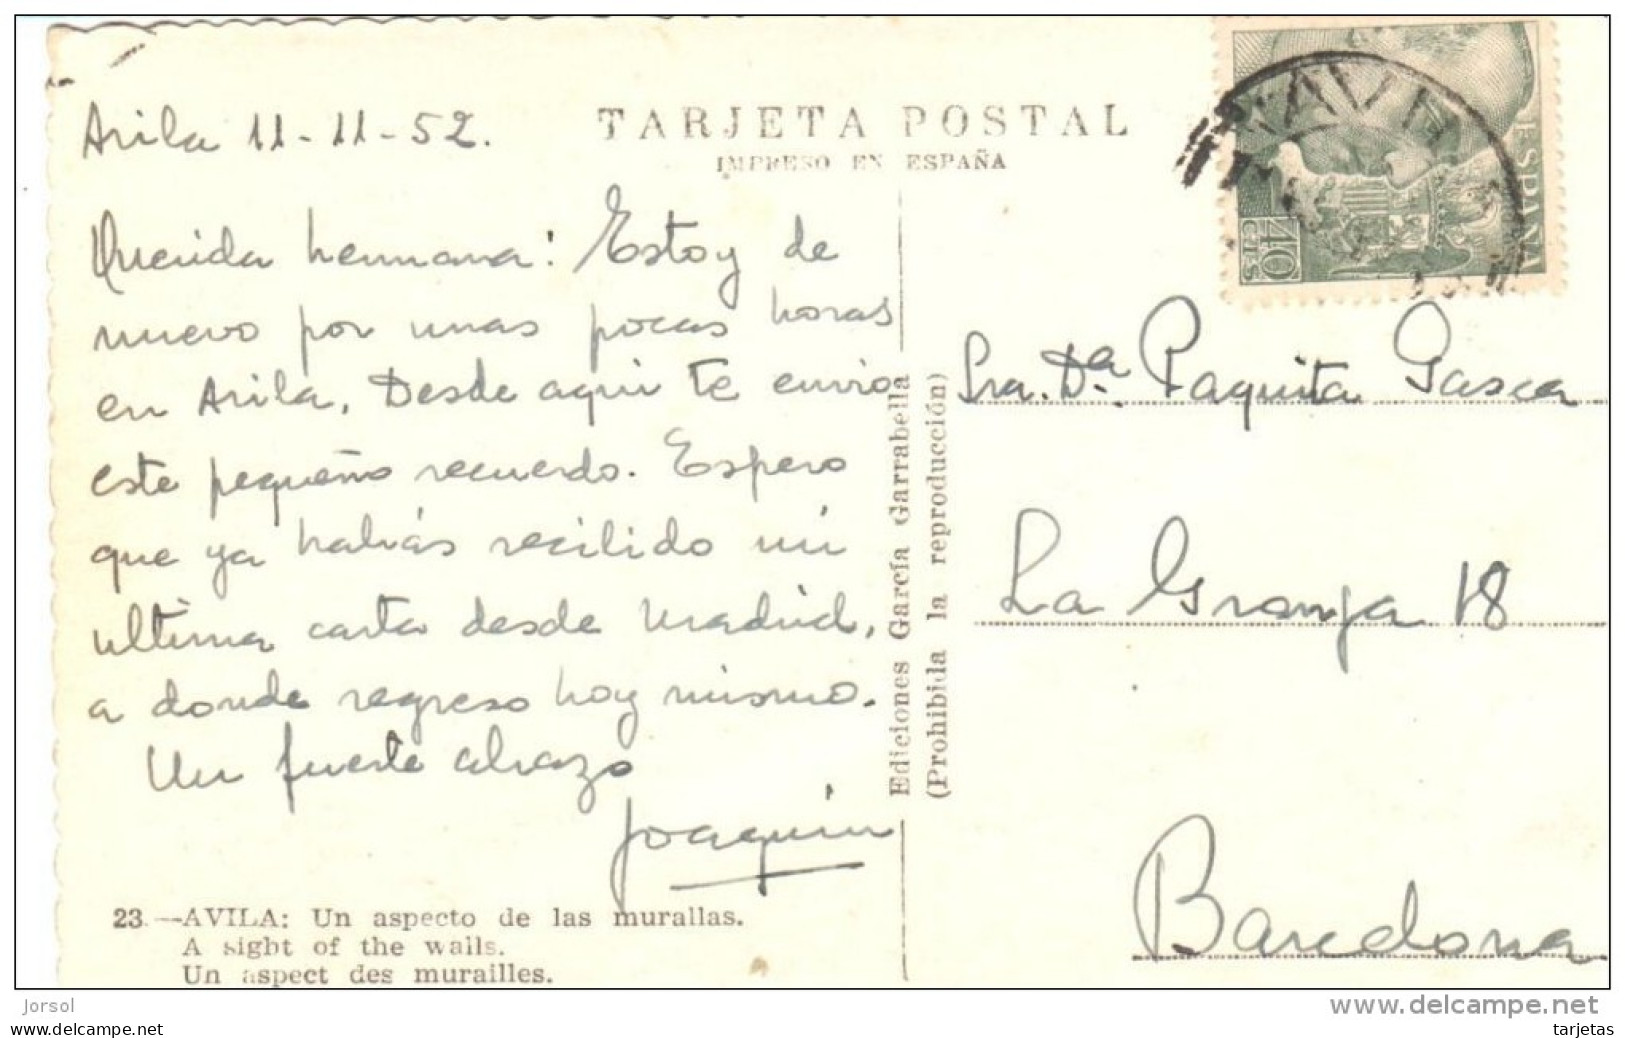 TARJETA POSTAL
IMPRESO EN ESPAÑA
Avila 11-11-52.
Querida hermana: Estoy de
nuevo por unas pocas horas
en Avila. Desde aquí te envio
este pequeño recuerdo. Espero
que ya habrás recibido mi
ultima carta desde Madrid,
a donde regreso hoy mismo.
Un fuerte abrazo
Joaquin
23.—AVILA: Un aspecto de las murallas.
A sight of the walls.
Un aspect des murailles.
Ediciones García Garrabella
(Prohibida la reproducción)
ESPAÑA
40
CTS
AVILA
Sra. Dª. Paquita Gasca
La Granja 18
Barcelona
Jorsol
www.delcampe.net
asny.car@live.com
tarjetas